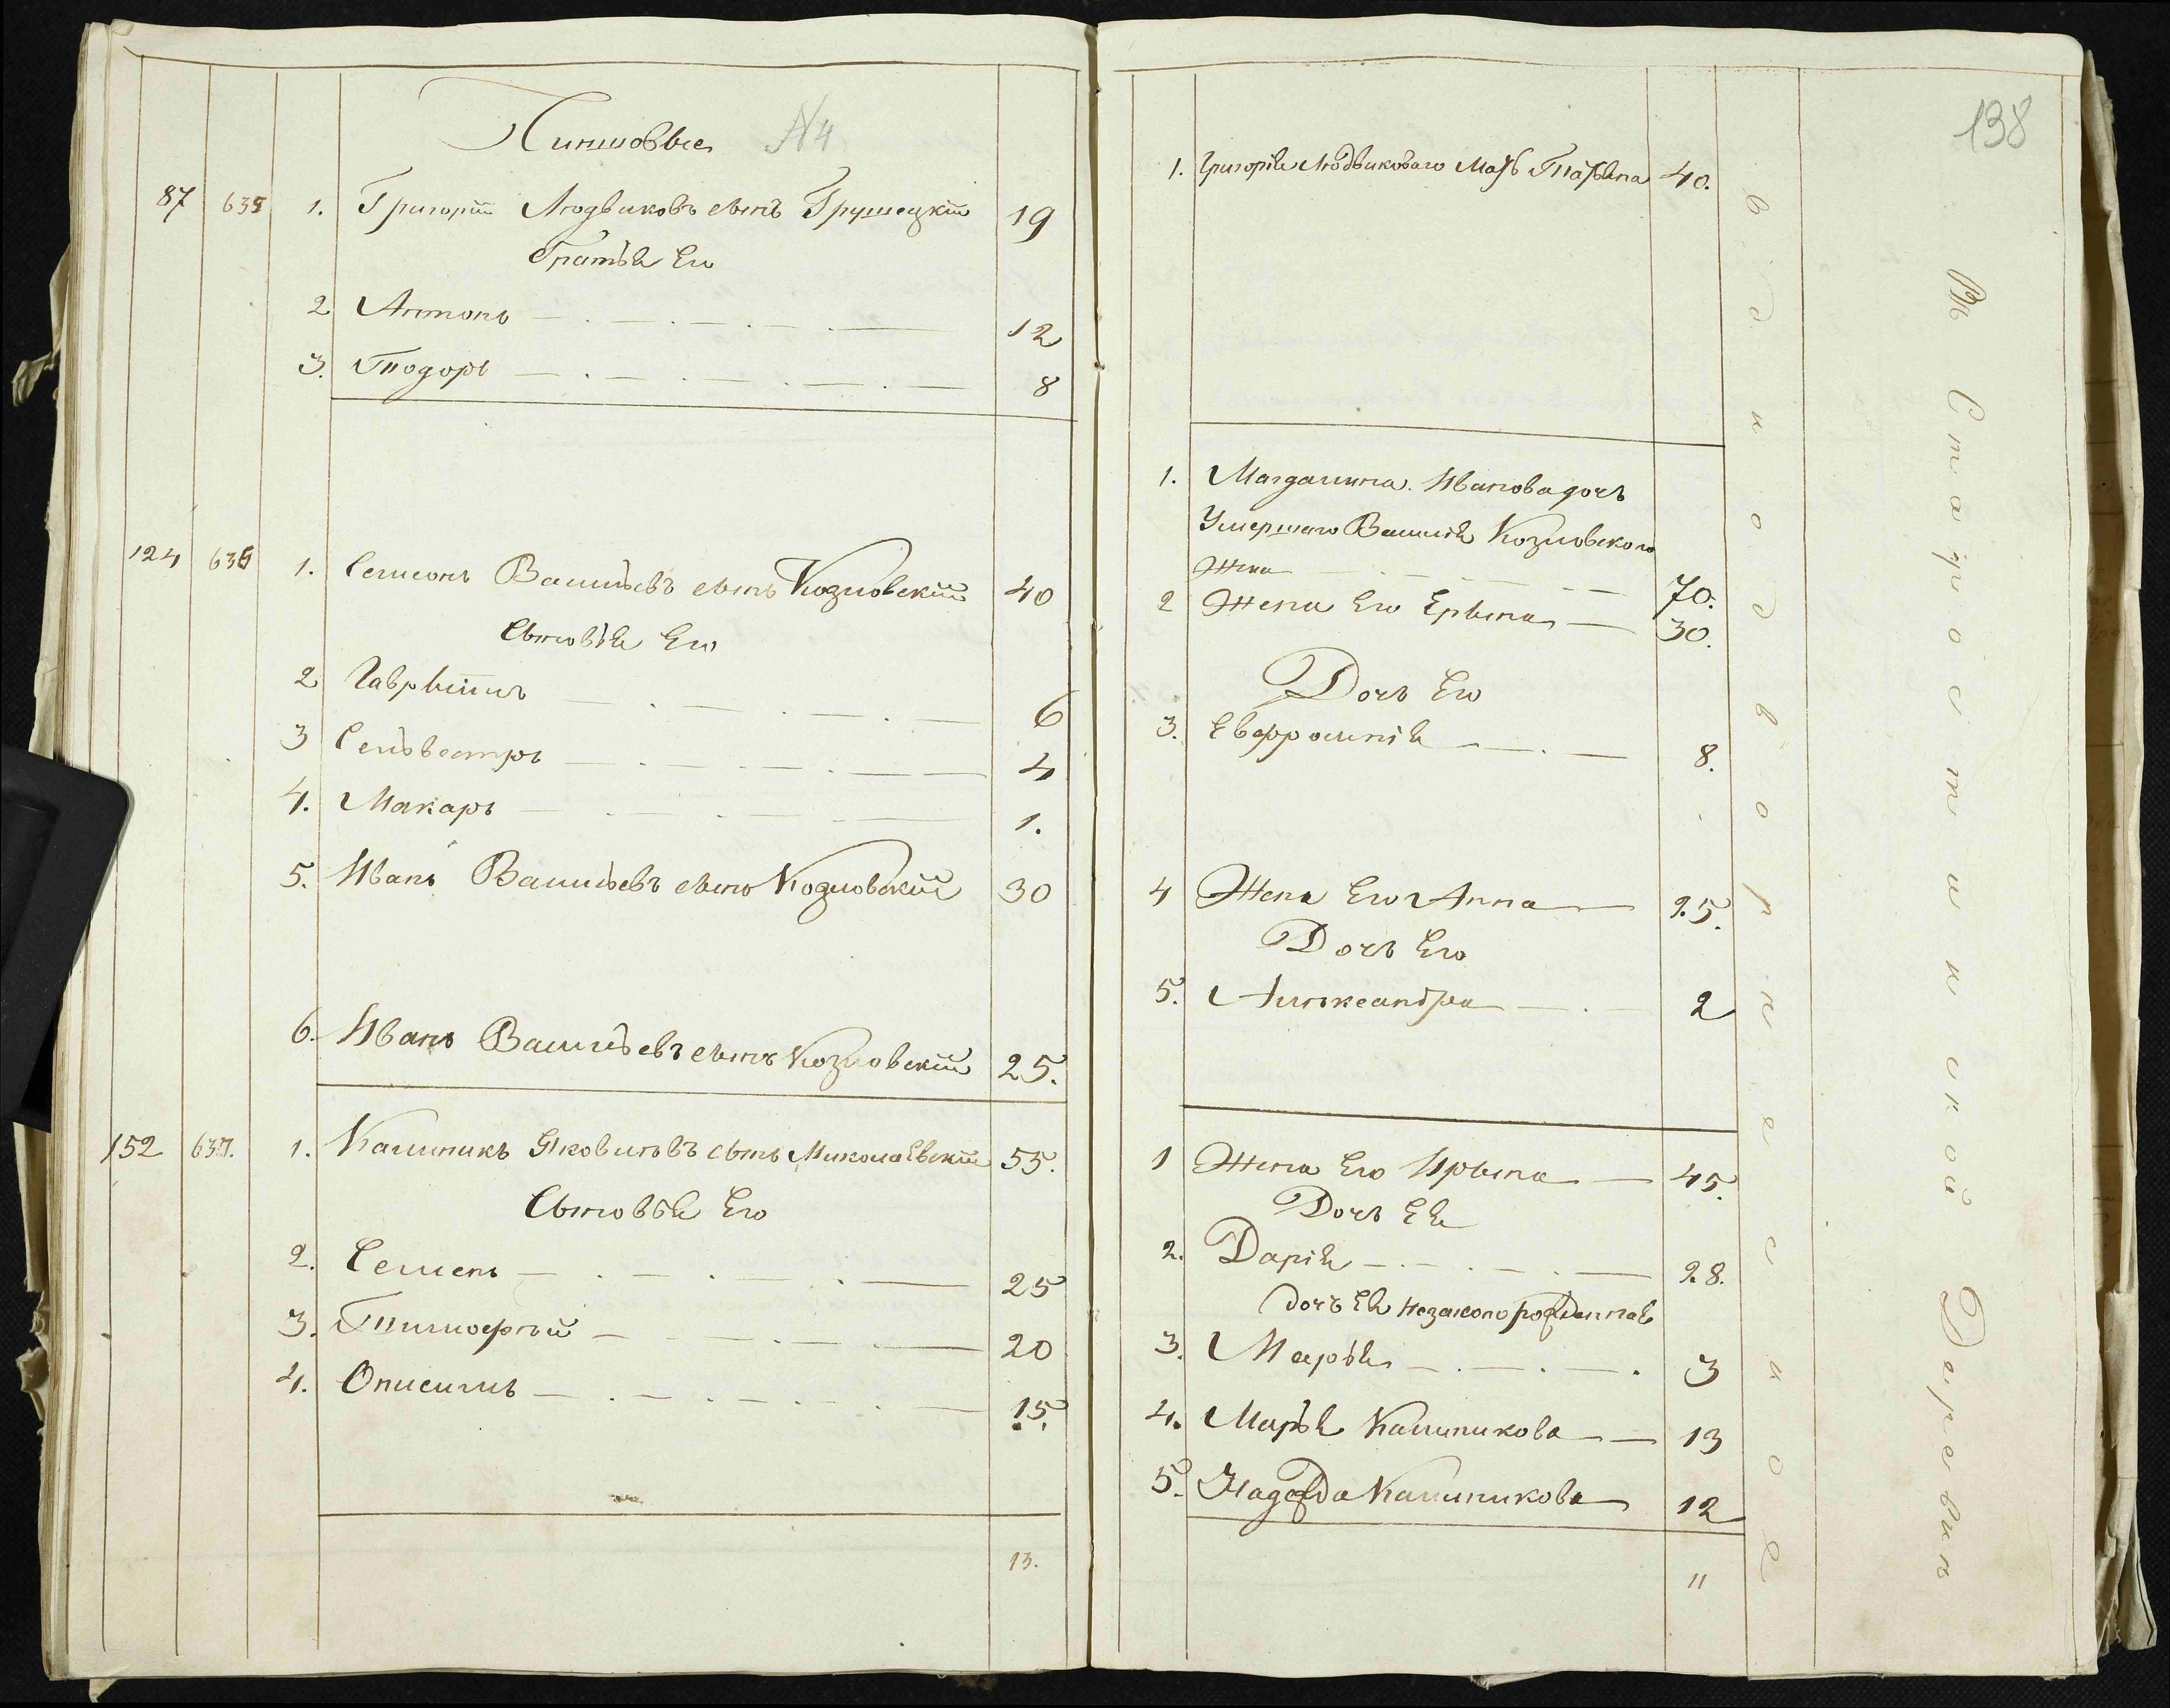 Чиншовые N 4
87 635 1. Григорій Людвиковъ сынъ Грушецкій 19
Братья Его
2 Антонъ 12
3. Тодоръ 8
124 636 1. Семионъ Васильевъ сынъ Козловскій 40
Сыновья Его
2 Гаврыіилъ 6
3 Сельвестръ 4
4. Макаръ 1.
5. Иванъ Васильевъ сынъ Козловскій 30
6. Иванъ Васильевъ сынъ Козловскій 25.
152 637. 1. Калиникъ Яковлевъ сынъ Миколаевскій 55.
Сыновья Его
2. Семенъ 25
3. Тимофтый 20
4. Онисимъ 15.
13.
138
1. Григорія Людвиковаго Мать Татьяна 40.
1. Магдалина Иванова дочь
Умершаго Василія Козловского
жена 70.
2 Жена Его Ерына 30.
Дочь Его
3. Евфросинія 8.
4 Жена Его Анна 25.
Дочь Его
5. Александра 2
1 Жена Его Ирына 45.
Дочь Ея
2. Дарія 28.
дочь Ея незаконорожденная
3. Марья 3
4. Марья Калиникова 13
5. Надежда Калиникова 12
11
в одиодворпнесиое
В Старостинской Деревни